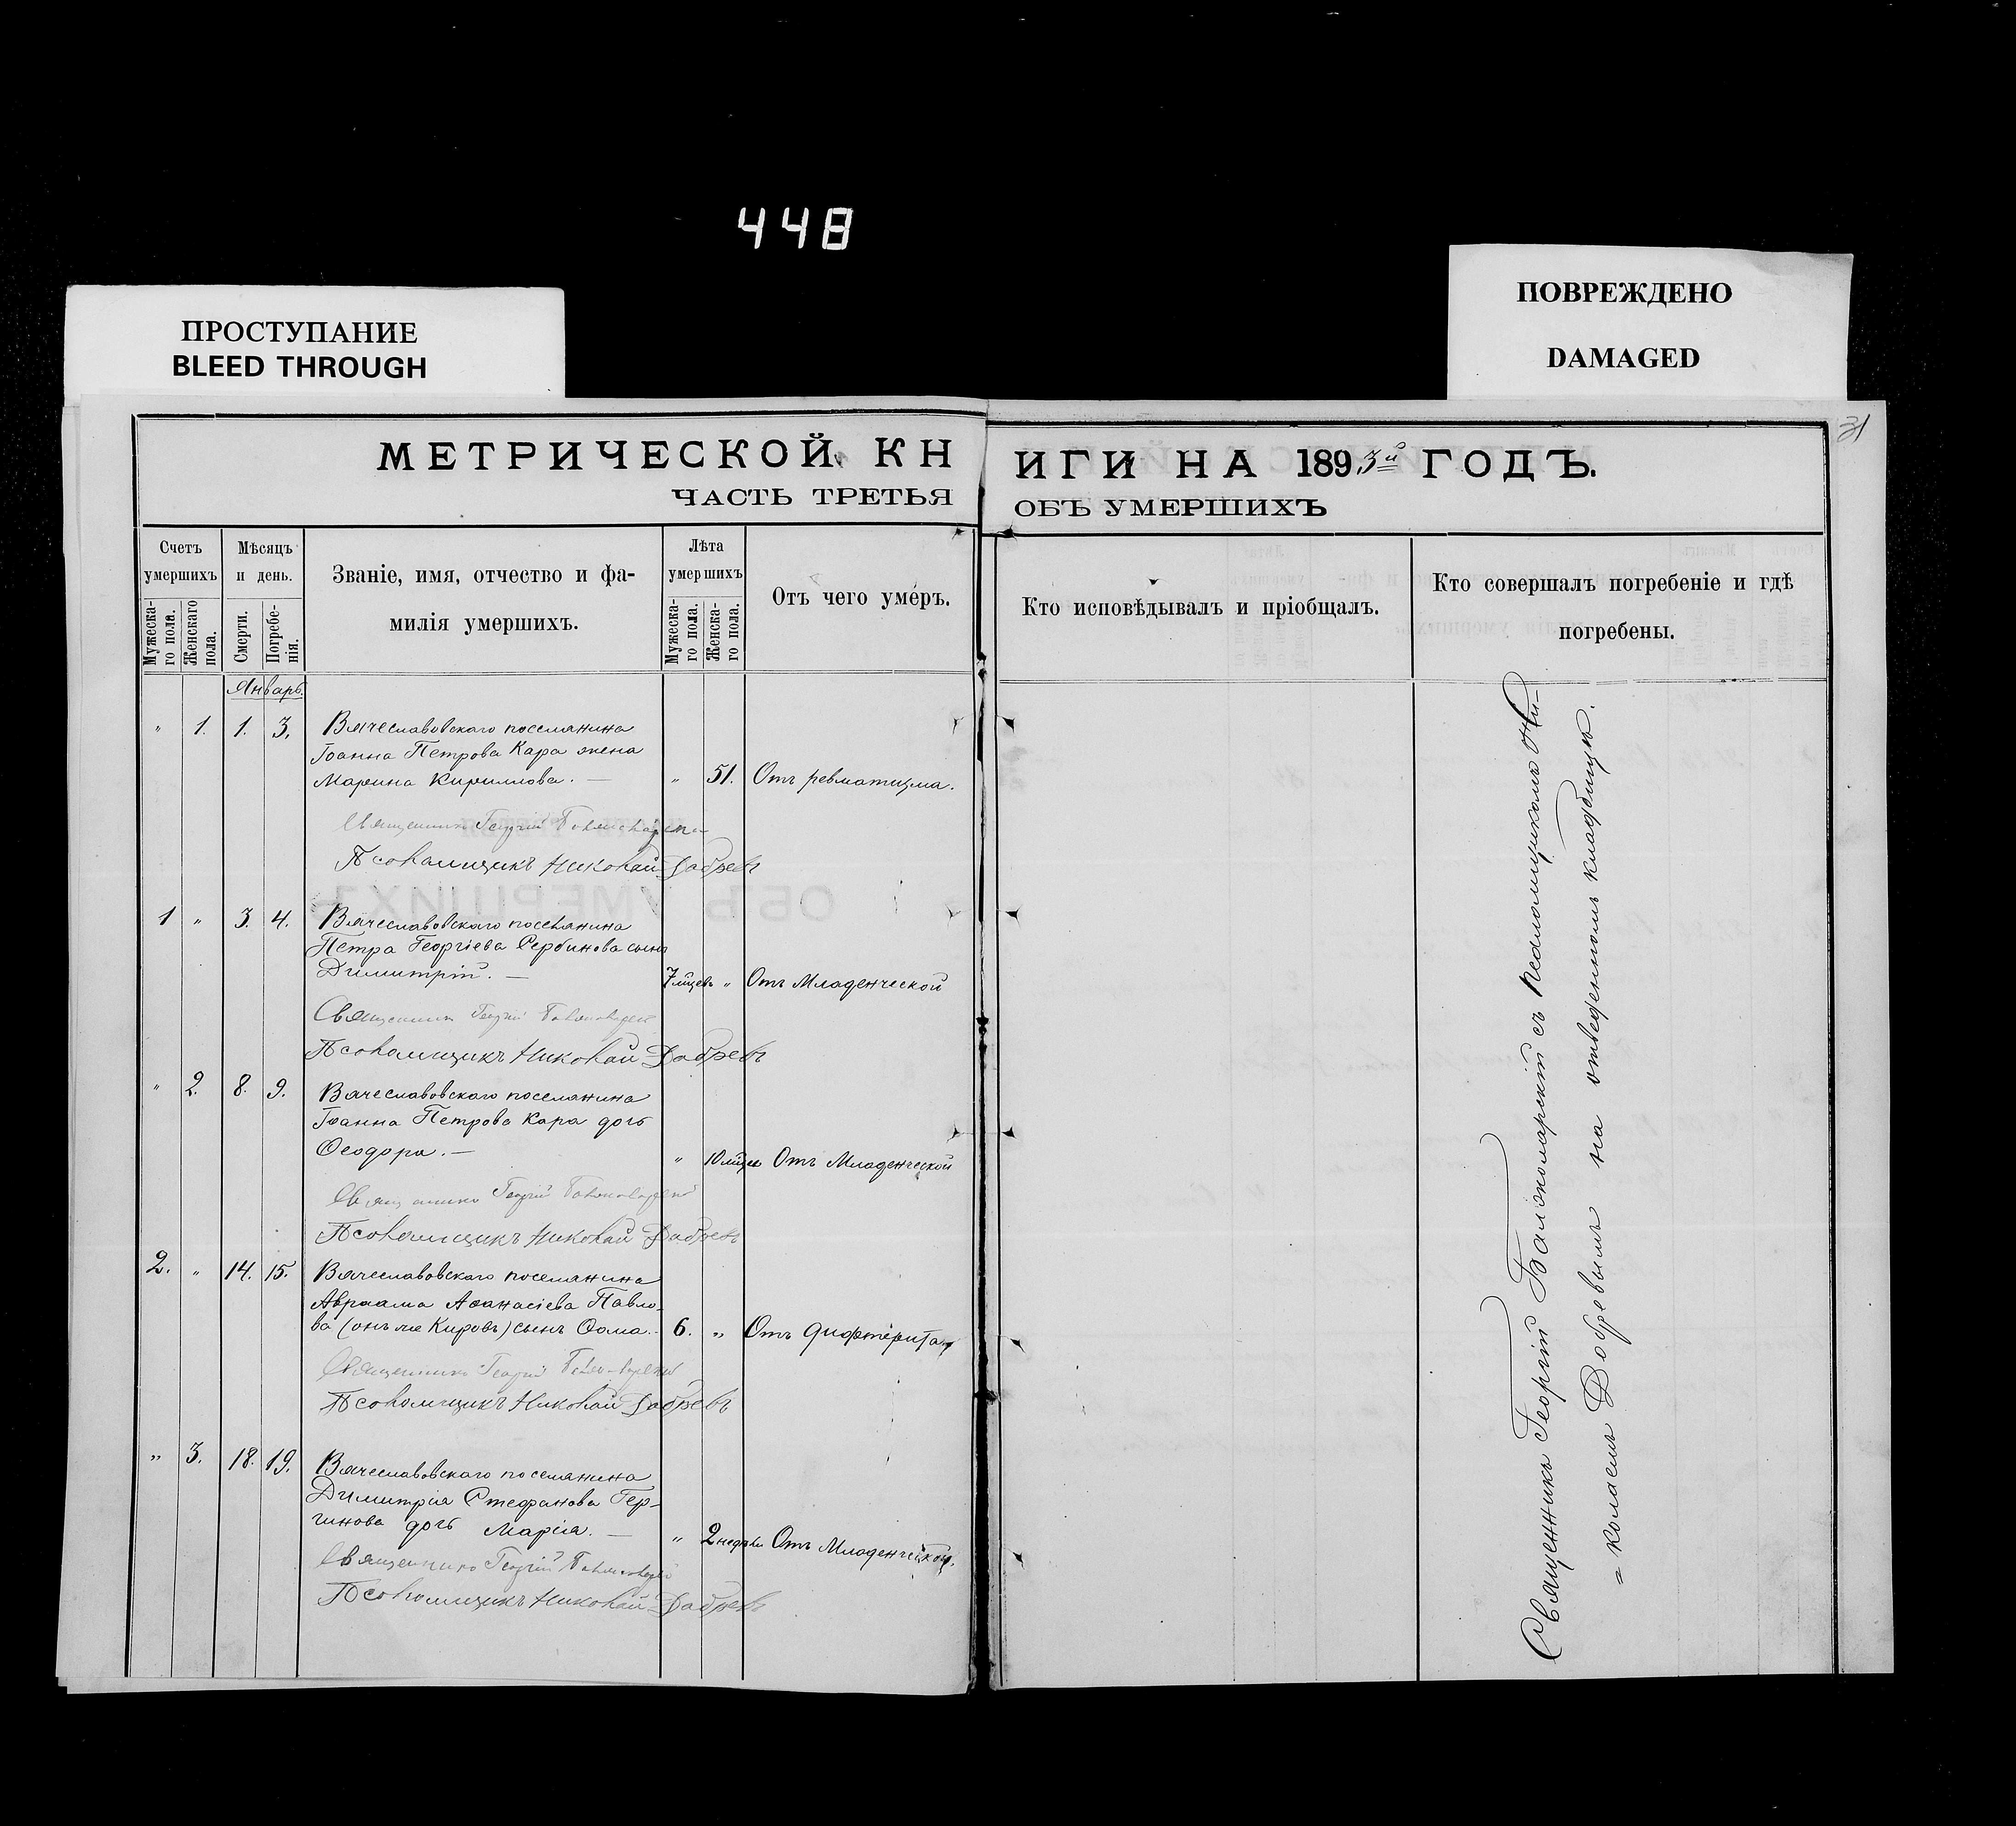 448
ПРОСТУПАНИЕ
BLEED THROUGH
ПОВРЕЖДЕНО
DAMAGED
31
МЕТРИЧЕСКОЙ КН
ЧАСТЬ ТРЕТЬЯ
ИГИ НА 1893й ГОДЪ.
ОБЪ УМЕРШИХЪ
Счетъ
умершихъ
Мужеска-
го пола.
Женскаго
пола.
Мѣсяцъ
и день.
Смерти.
Погребе-
нія.
Званіе, имя, отчество и фа-
милія умершихъ.
Лѣта
умершихъ
Мужеска-
го пола.
Женска-
го пола.
Отъ чего умеръ.
Кто исповѣдывалъ и пріобщалъ.
Кто совершалъ погребеніе и гдѣ
погребены.
Январь.
" 1. 1. 3. Вячеславовскаго поселянина
Іоанна Петрова Кара жена
Марина Кириллова. — " 51. Отъ ревматизма.
Священникъ Георгій
Псаломщикъ Николай Добревъ
1 " 3. 4. Вячеславовскаго поселянина
Петра Георгіева Сербинова сынъ
Димитрій. — 7 мцевъ " Отъ Младенческой
Священникъ Георгій
Псаломщикъ Николай Добревъ
" 2. 8. 9. Вячеславовскаго поселянина
Іоанна Петрова Кара дочь
Ѳеодора. — " 10 мцев Отъ Младенческой
Священникъ Георгій
Псаломщикъ Николай Добревъ
2. " 14. 15. Вячеславовскаго поселянина
Авраама Аѳанасіева Павло-
ва (онъ же Кировъ) сынъ Ѳома. 6. " Отъ дифтерита
Священникъ Георгій
Псаломщикъ Николай Добревъ
" 3. 18. 19. Вячеславовскаго поселянина
Димитрія Стефанова Гер-
гинова дочь Марія. — " 2 недѣли Отъ Младенческой.
Священникъ Георгій
Псаломщикъ Николай Добревъ
Священникъ Георгій съ Псаломщикомъ Ни-
колаемъ Добревымъ на отведенномъ кладбищѣ.